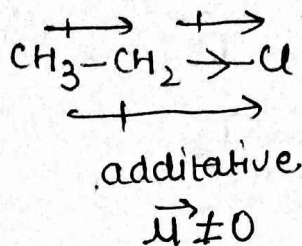 CH₃-CH₂→Cl
additative
μ⃗≠0